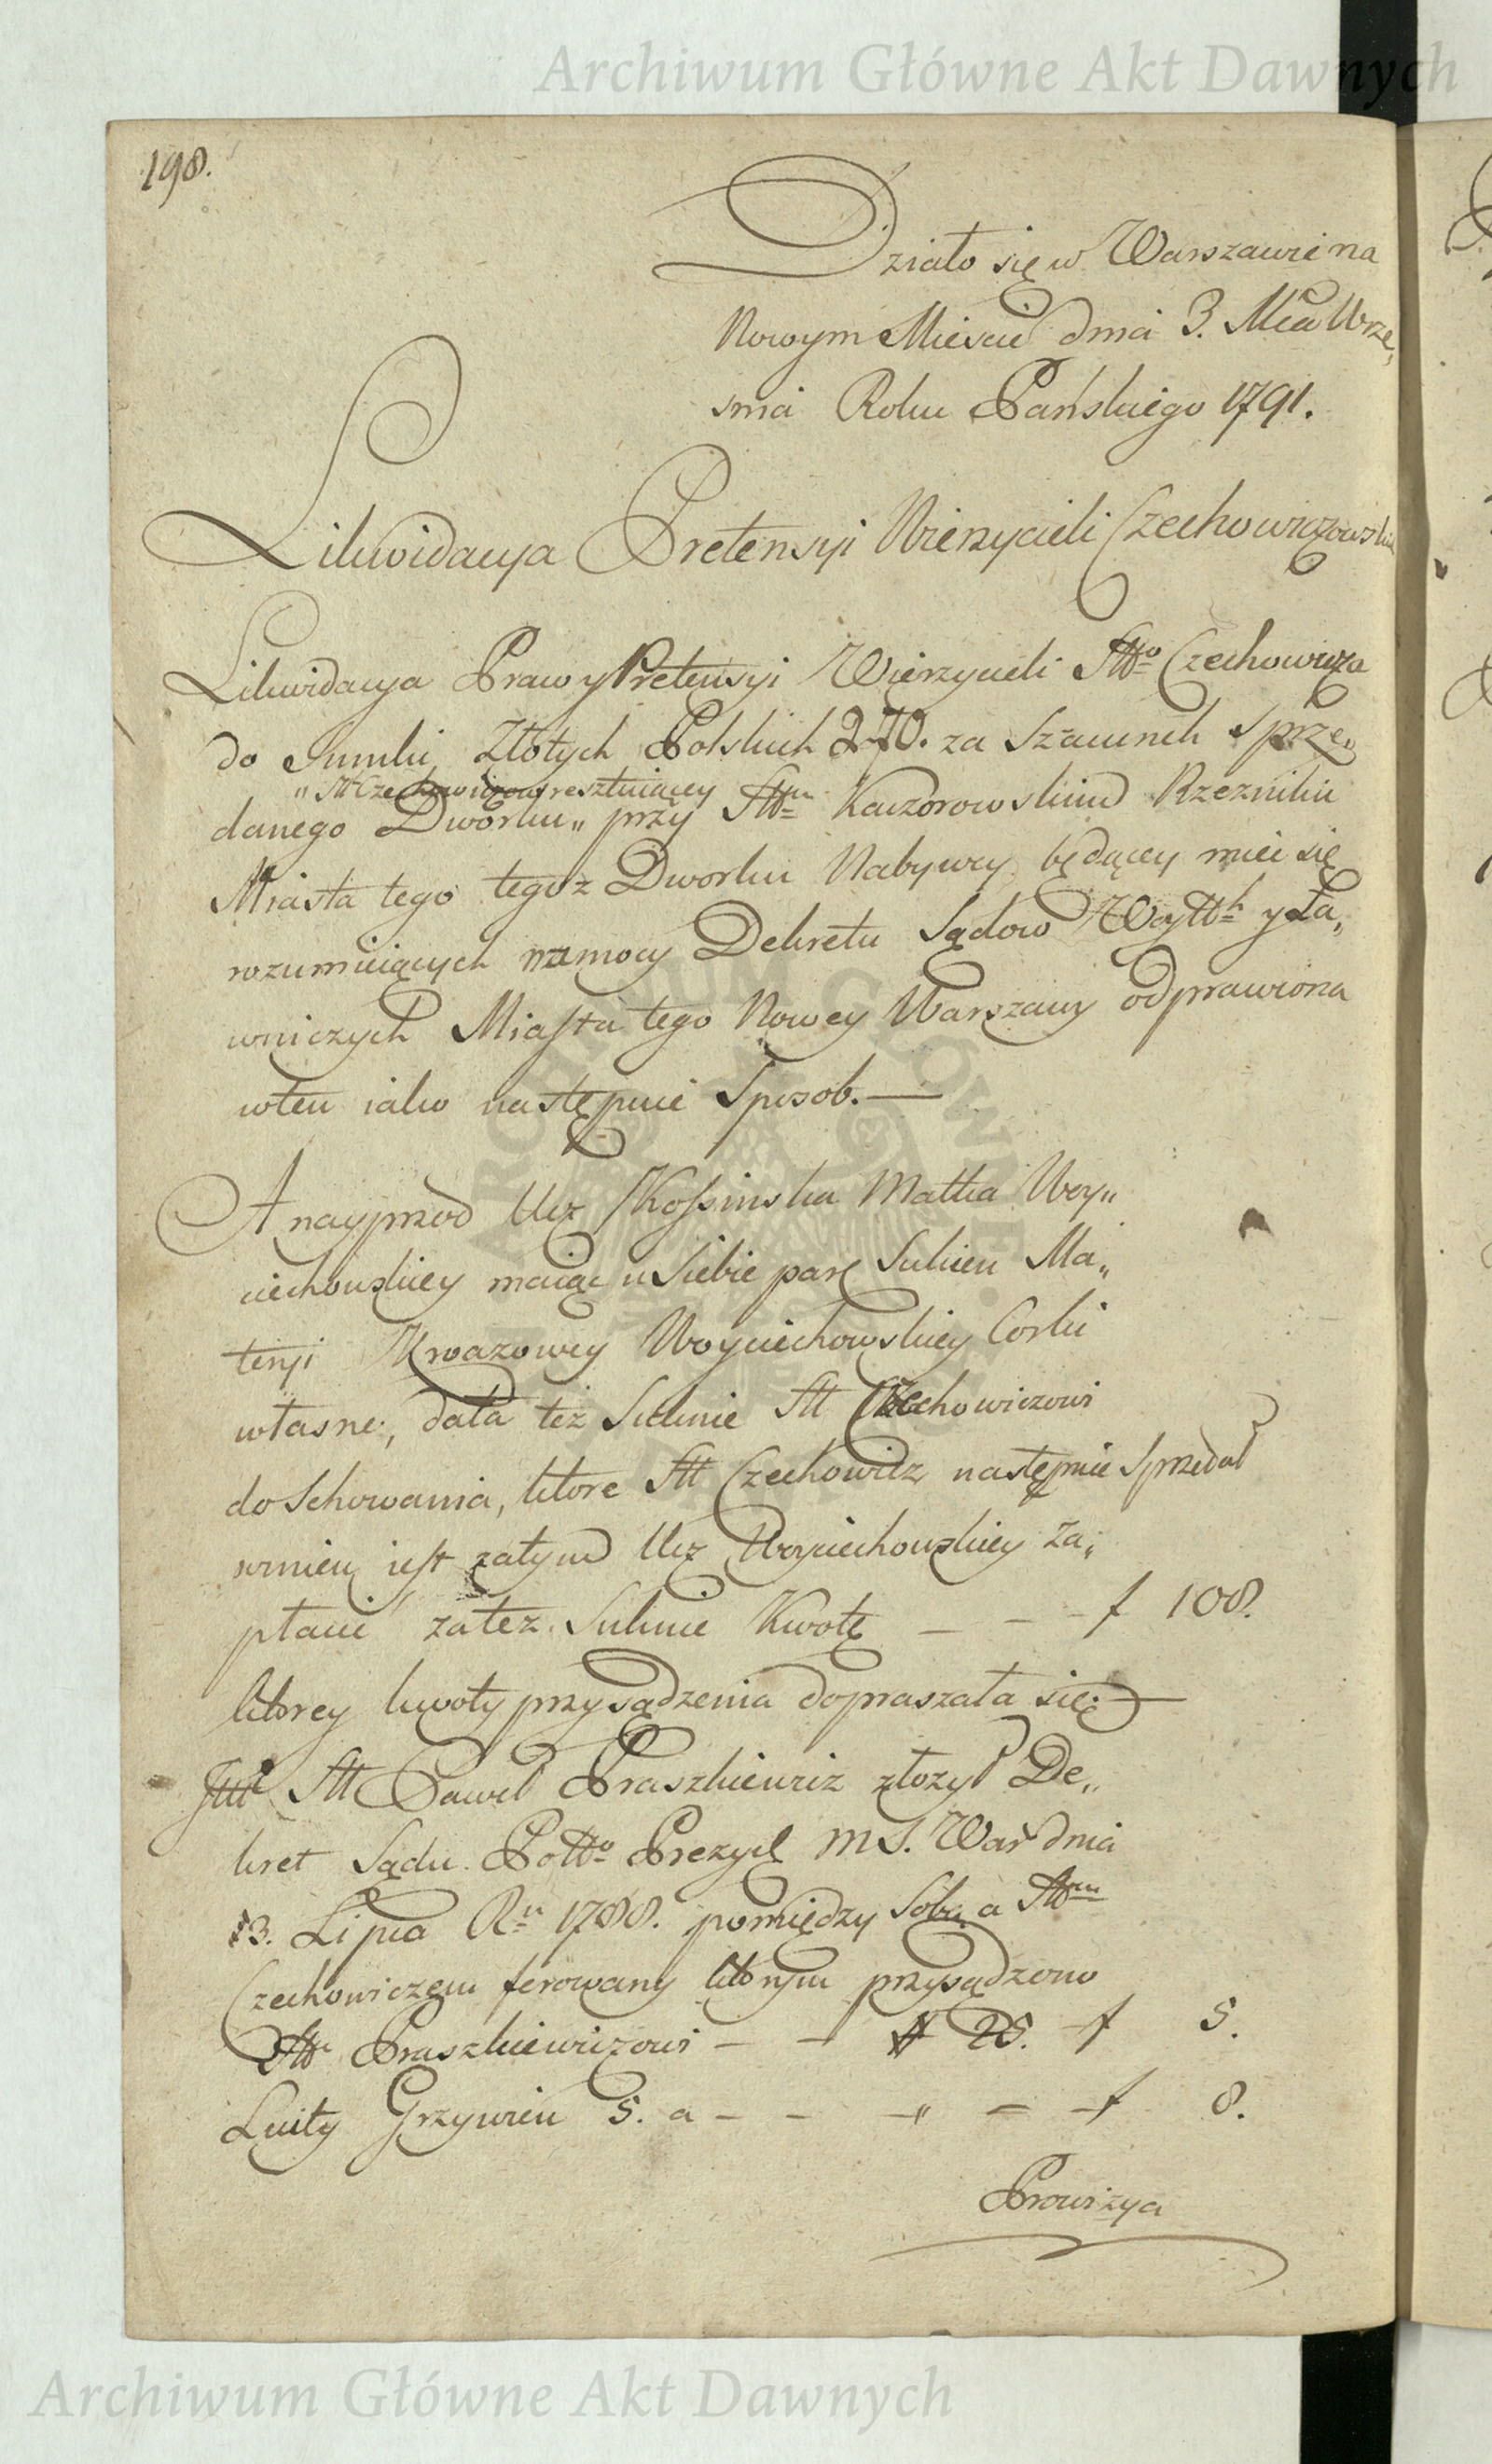 Archiwum Główne Akt Dawnych
198.
Działo się w Warszawie na
Nowym Mieście dnia 3. Mca Wrze„
snia Roku Pańskiego 1791.
Likwidacya Pretensyi Wierzycieli Czechowiczowskich
Likwidacya Praw y Pretensyi Wierzycieli Stto Czechowicza
do Summy Złotych Polskich 270. za Szacunek Sprze„
„ Stt Czechowiczowi resztuiącey
danego Dworku„ przy Sttm Kaczorowskim Rzezniku
Miasta tego tegoz Dworku Nabywcy będącey mieć się
rozumieiących na mocy Dekretu Sądow Woytth y Ła„
wniczych Miasta tego Nowey Warszawy odprawiona
w ten iako następuie Sposob. —
A nayprzod Ucz Kossinska Matka Woy„
ciechowskiey maiąc u Siebie parę Sukien Ma„
teryi Kroazowey Woyciechowskiey Corki
własne, dała też Suknie Stt Czechowiczowi
do Schowania, ktore Stt Czechowicz następnie Sprzedał
winien iest zatym Ucz Woyciechowskiey za„
płacić za też Suknie Kwotę — — f 108.
ktorey kwoty przysądzenia dopraszała się. —
Stt Paweł Praszkiewicz złożył De„
kret Sądu Potto Prezyd M S. War dnia
13. Lipca Ru 1788. pomiędzy Sobą a Sttm
Czechowiczem ferowany ktorym przysądzono
Sttu Praszkiewiczowi — — # 25. f 5.
Luity Grzywien 5. a — — „ — f 8.
Prowizya
Archiwum Główne Akt Dawnych